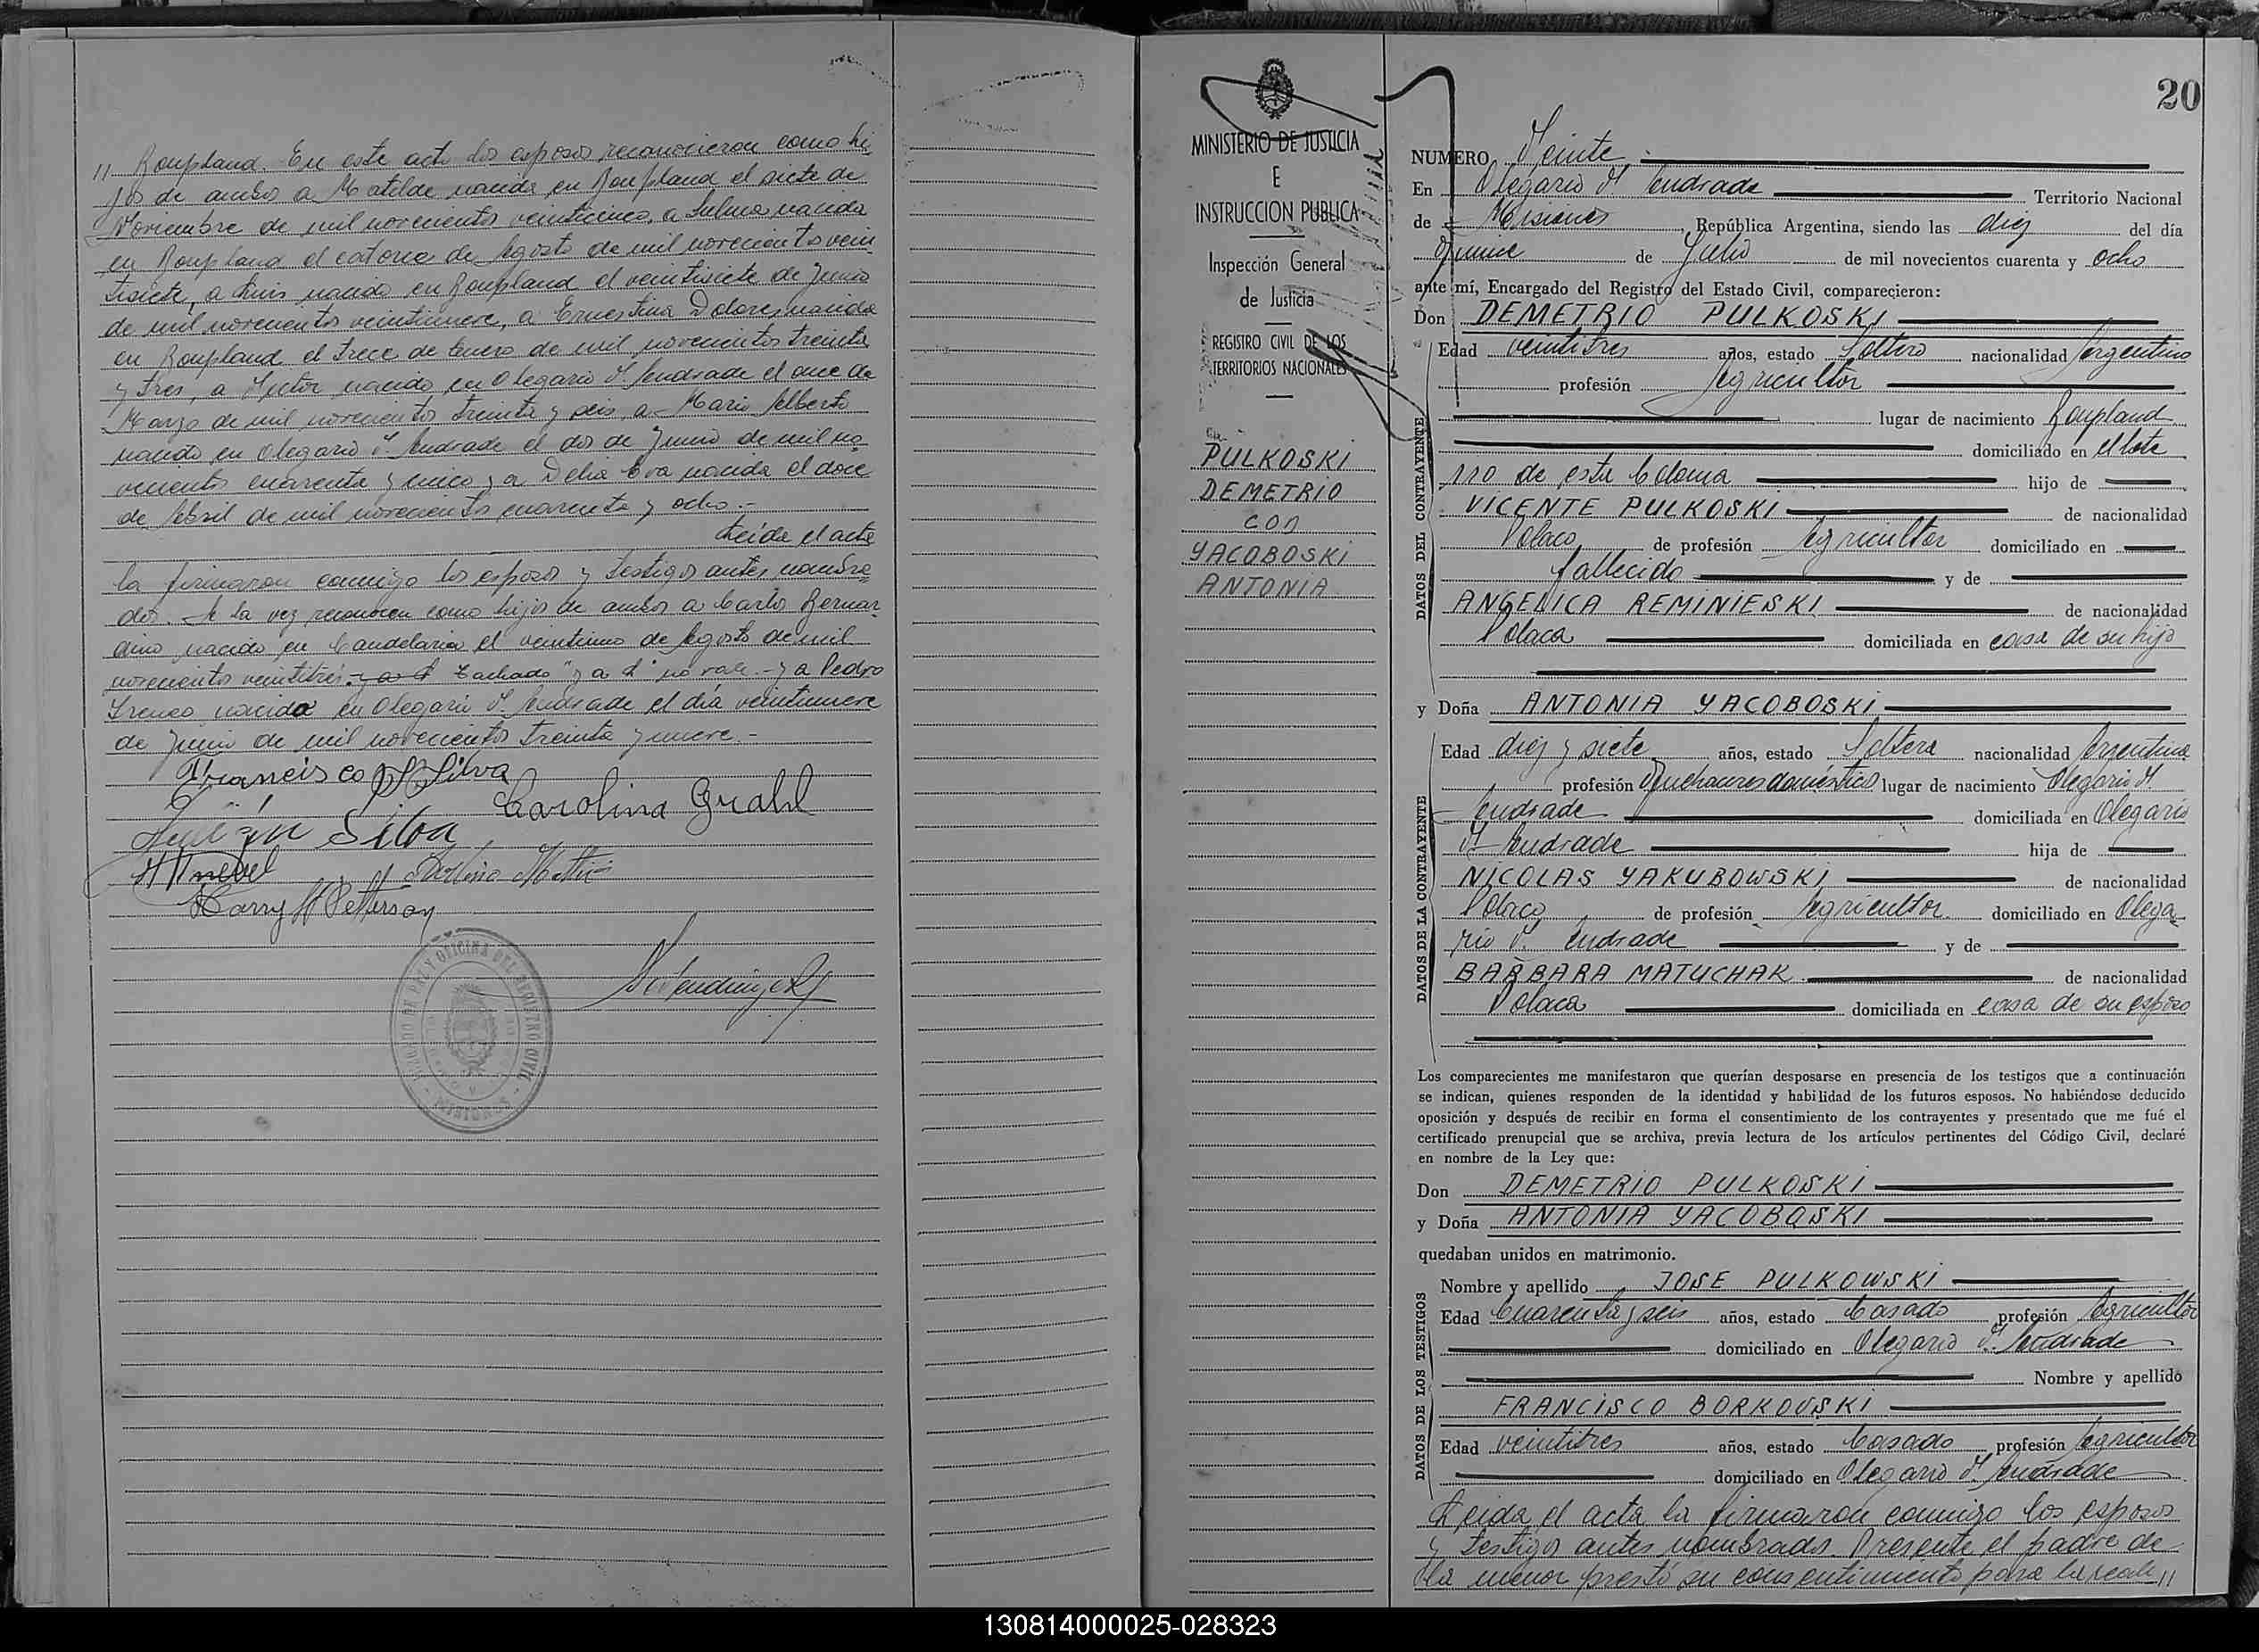 // Roupland. En este acto los esposos reconocieron como hi
jos de ambos a Matilde nacida en Roupland el siete de
Noviembre de mil novecientos veinticinco, a Sulma nacida
en Roupland el catorce de Agosto de mil novecientos vein
tisiete, a Luis nacido en Roupland el veintisiete de Junio
de mil novecientos veintinueve, a Ernestina Dolores nacida
en Roupland el trece de Enero de mil novecientos treinta
y tres, a Hector nacido en Olegario V. Andrade el once de
Marzo de mil novecientos treinta y seis, a Mario Alberto
nacido en Olegario V. Andrade el dos de Junio de mil no
vecientos cuarenta y cinco y a Delia Eva nacida el doce
de Abril de mil novecientos cuarenta y ocho.-
Leída el acta
la firmaron conmigo los esposos y testigos antes nombra-
dos. A la vez reconocen como hijos de ambos a Carlos Bernar
dino nacido en Candelaria el veintiuno de Agosto de mil
novecientos veintitrés.- y a d "tachado" y a d" no vale.- y a Pedro
Ireneo nacido en Olegario V. Andrade el día veintinueve
de Junio de mil novecientos treinta y nueve.-
Francisco Silva
Carolina Grahl
Julián Silva
Harry H Petterson
OFICINA DEL REGISTRO CIVIL
20
MINISTERIO DE JUSTICIA
E
INSTRUCCION PUBLICA
Inspección General
de Justicia
REGISTRO CIVIL DE LOS
TERRITORIOS NACIONALES
PULKOSKI
DEMETRIO
con
YACOBOSKI
ANTONIA
NUMERO Veinte.-
En Olegario V. Andrade Territorio Nacional
de Misiones, República Argentina, siendo las diez del día
quince de Julio de mil novecientos cuarenta y ocho
ante mí, Encargado del Registro del Estado Civil, comparecieron:
Don DEMETRIO PULKOSKI
DATOS DEL CONTRAYENTE
Edad veintitres años, estado Soltero nacionalidad Argentino
profesión Agricultor
lugar de nacimiento Roupland
domiciliado en el lote
110 de esta Colonia hijo de
VICENTE PULKOSKI de nacionalidad
Polaco de profesión Agricultor domiciliado en
fallecido y de
ANGELICA REMINIESKI de nacionalidad
Polaca domiciliada en casa de su hijo
y Doña ANTONIA YACOBOSKI
DATOS DE LA CONTRAYENTE
Edad diez y siete años, estado Soltera nacionalidad Argentina
profesión Quehaceres domésticos lugar de nacimiento Olegario V.
Andrade domiciliada en Olegario
V. Andrade hija de
NICOLAS YAKUBOWSKI de nacionalidad
Polaco de profesión Agricultor domiciliado en Olega-
rio V. Andrade y de
BARBARA MATUCHAK de nacionalidad
Polaca domiciliada en casa de su esposo
Los comparecientes me manifestaron que querían desposarse en presencia de los testigos que a continuación
se indican, quienes responden de la identidad y habilidad de los futuros esposos. No habiéndose deducido
oposición y después de recibir en forma el consentimiento de los contrayentes y presentado que me fué el
certificado prenupcial que se archiva, previa lectura de los artículos pertinentes del Código Civil, declaré
en nombre de la Ley que:
Don DEMETRIO PULKOSKI
y Doña ANTONIA YACOBOSKI
quedaban unidos en matrimonio.
DATOS DE LOS TESTIGOS
Nombre y apellido JOSE PULKOWSKI
Edad Cuarenta y seis años, estado Casado profesión Agricultor
domiciliado en Olegario V. Andrade
Nombre y apellido
FRANCISCO BORKOUSKI
Edad veintitres años, estado Casado profesión Agricultor
domiciliado en Olegario V. Andrade
Leida el acta la firmaron conmigo los esposos
y testigos antes nombrados. Presente el padre de
la menor prestó su consentimiento para la reali //
130814000025-028323